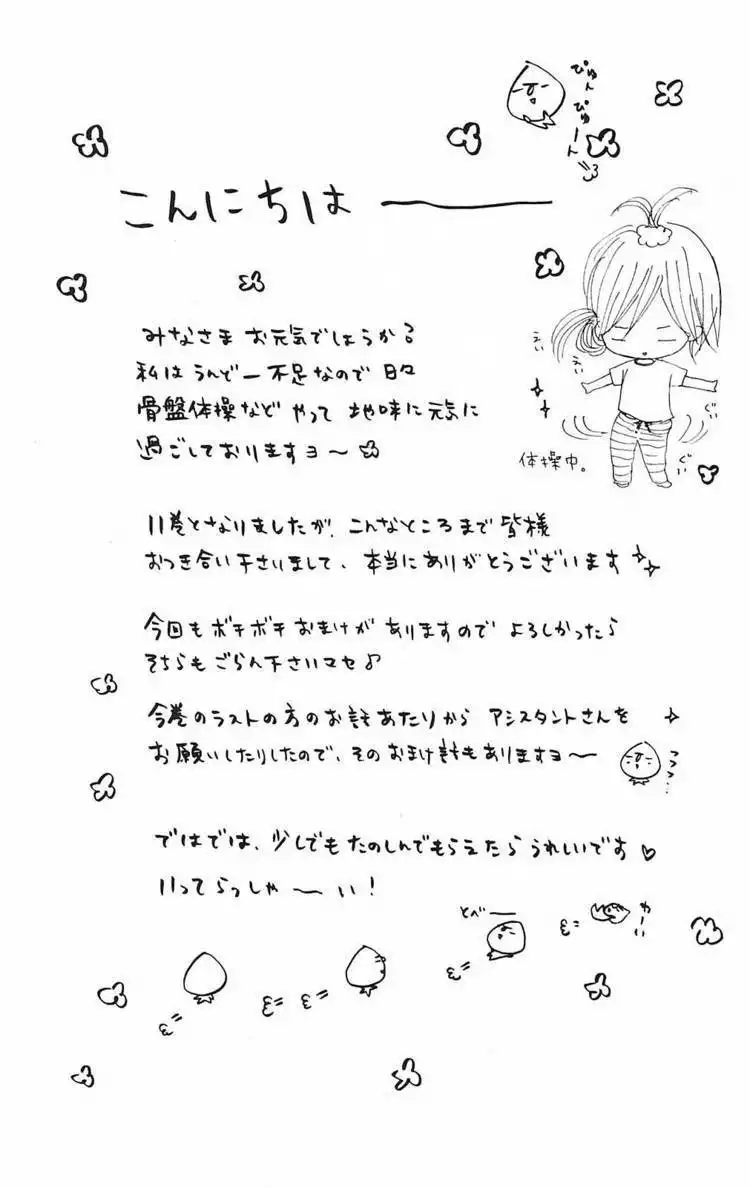 ぴゅん
ぴゅーん
こんにちは ―――
みなさま お元気でしょうか？
私は うんどー不足なので 日々
骨盤体操など やって 地味に元気に
過ごしておりますヨ〜
えい
えい
ぐい
ぐい
体操中。
11巻となりましたが、こんなところまで皆様
おつき合い下さいまして、本当にありがとうございます
今回もボチボチおまけがありますので よろしかったら
そちらもごらん下さいマセ♪
今巻のラストの方のお話あたりから アシスタントさんを
お願いしたりしたので、そのおまけ話もありますヨ〜
フフフ…
ではでは、少しでもたのしんでもらえたら うれしいです♡
いってらっしゃ〜い！
とべー
わーい